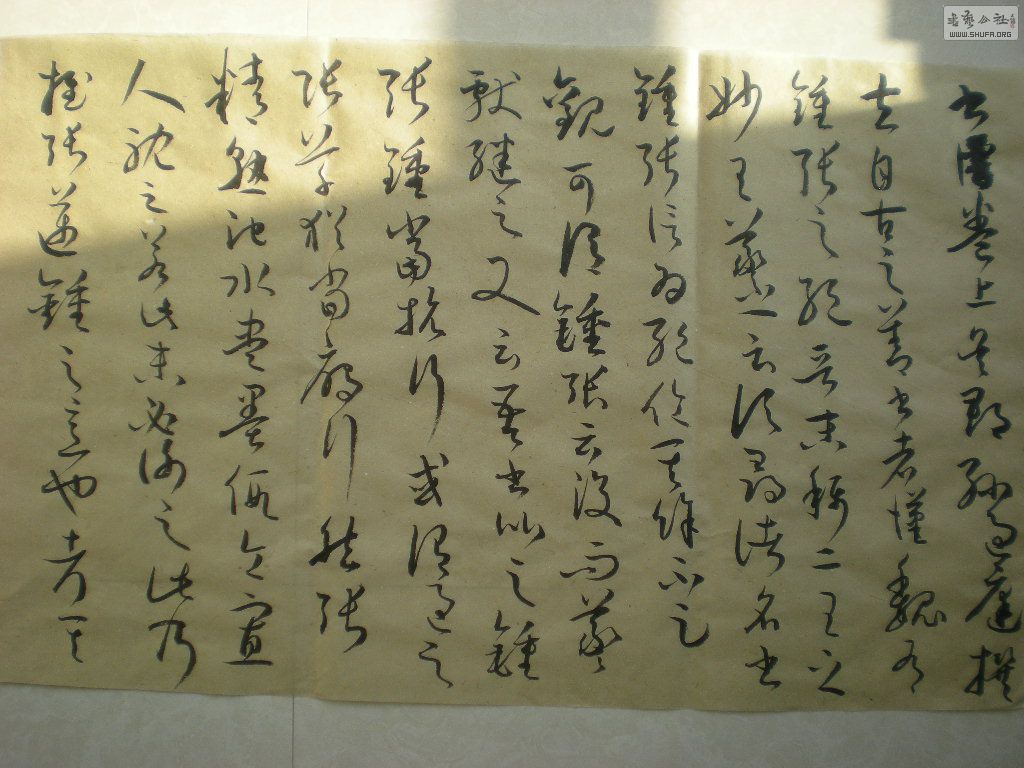 書譜卷上吳郡孫過庭撰
夫自古之善書者漢魏有
鍾張之絕晉末稱二王之
妙王羲之云頃尋諸名書
鍾張信為絕倫其餘不足
觀可謂鍾張云沒而羲
獻繼之又云吾書比之鍾
張鍾當抗行或謂過之
張草猶當雁行然張
精熟池水盡墨假令寡
人耽之若此未必謝之此乃
推張邁鍾之意也考其
書藝公社
WWW.SHUFA.ORG